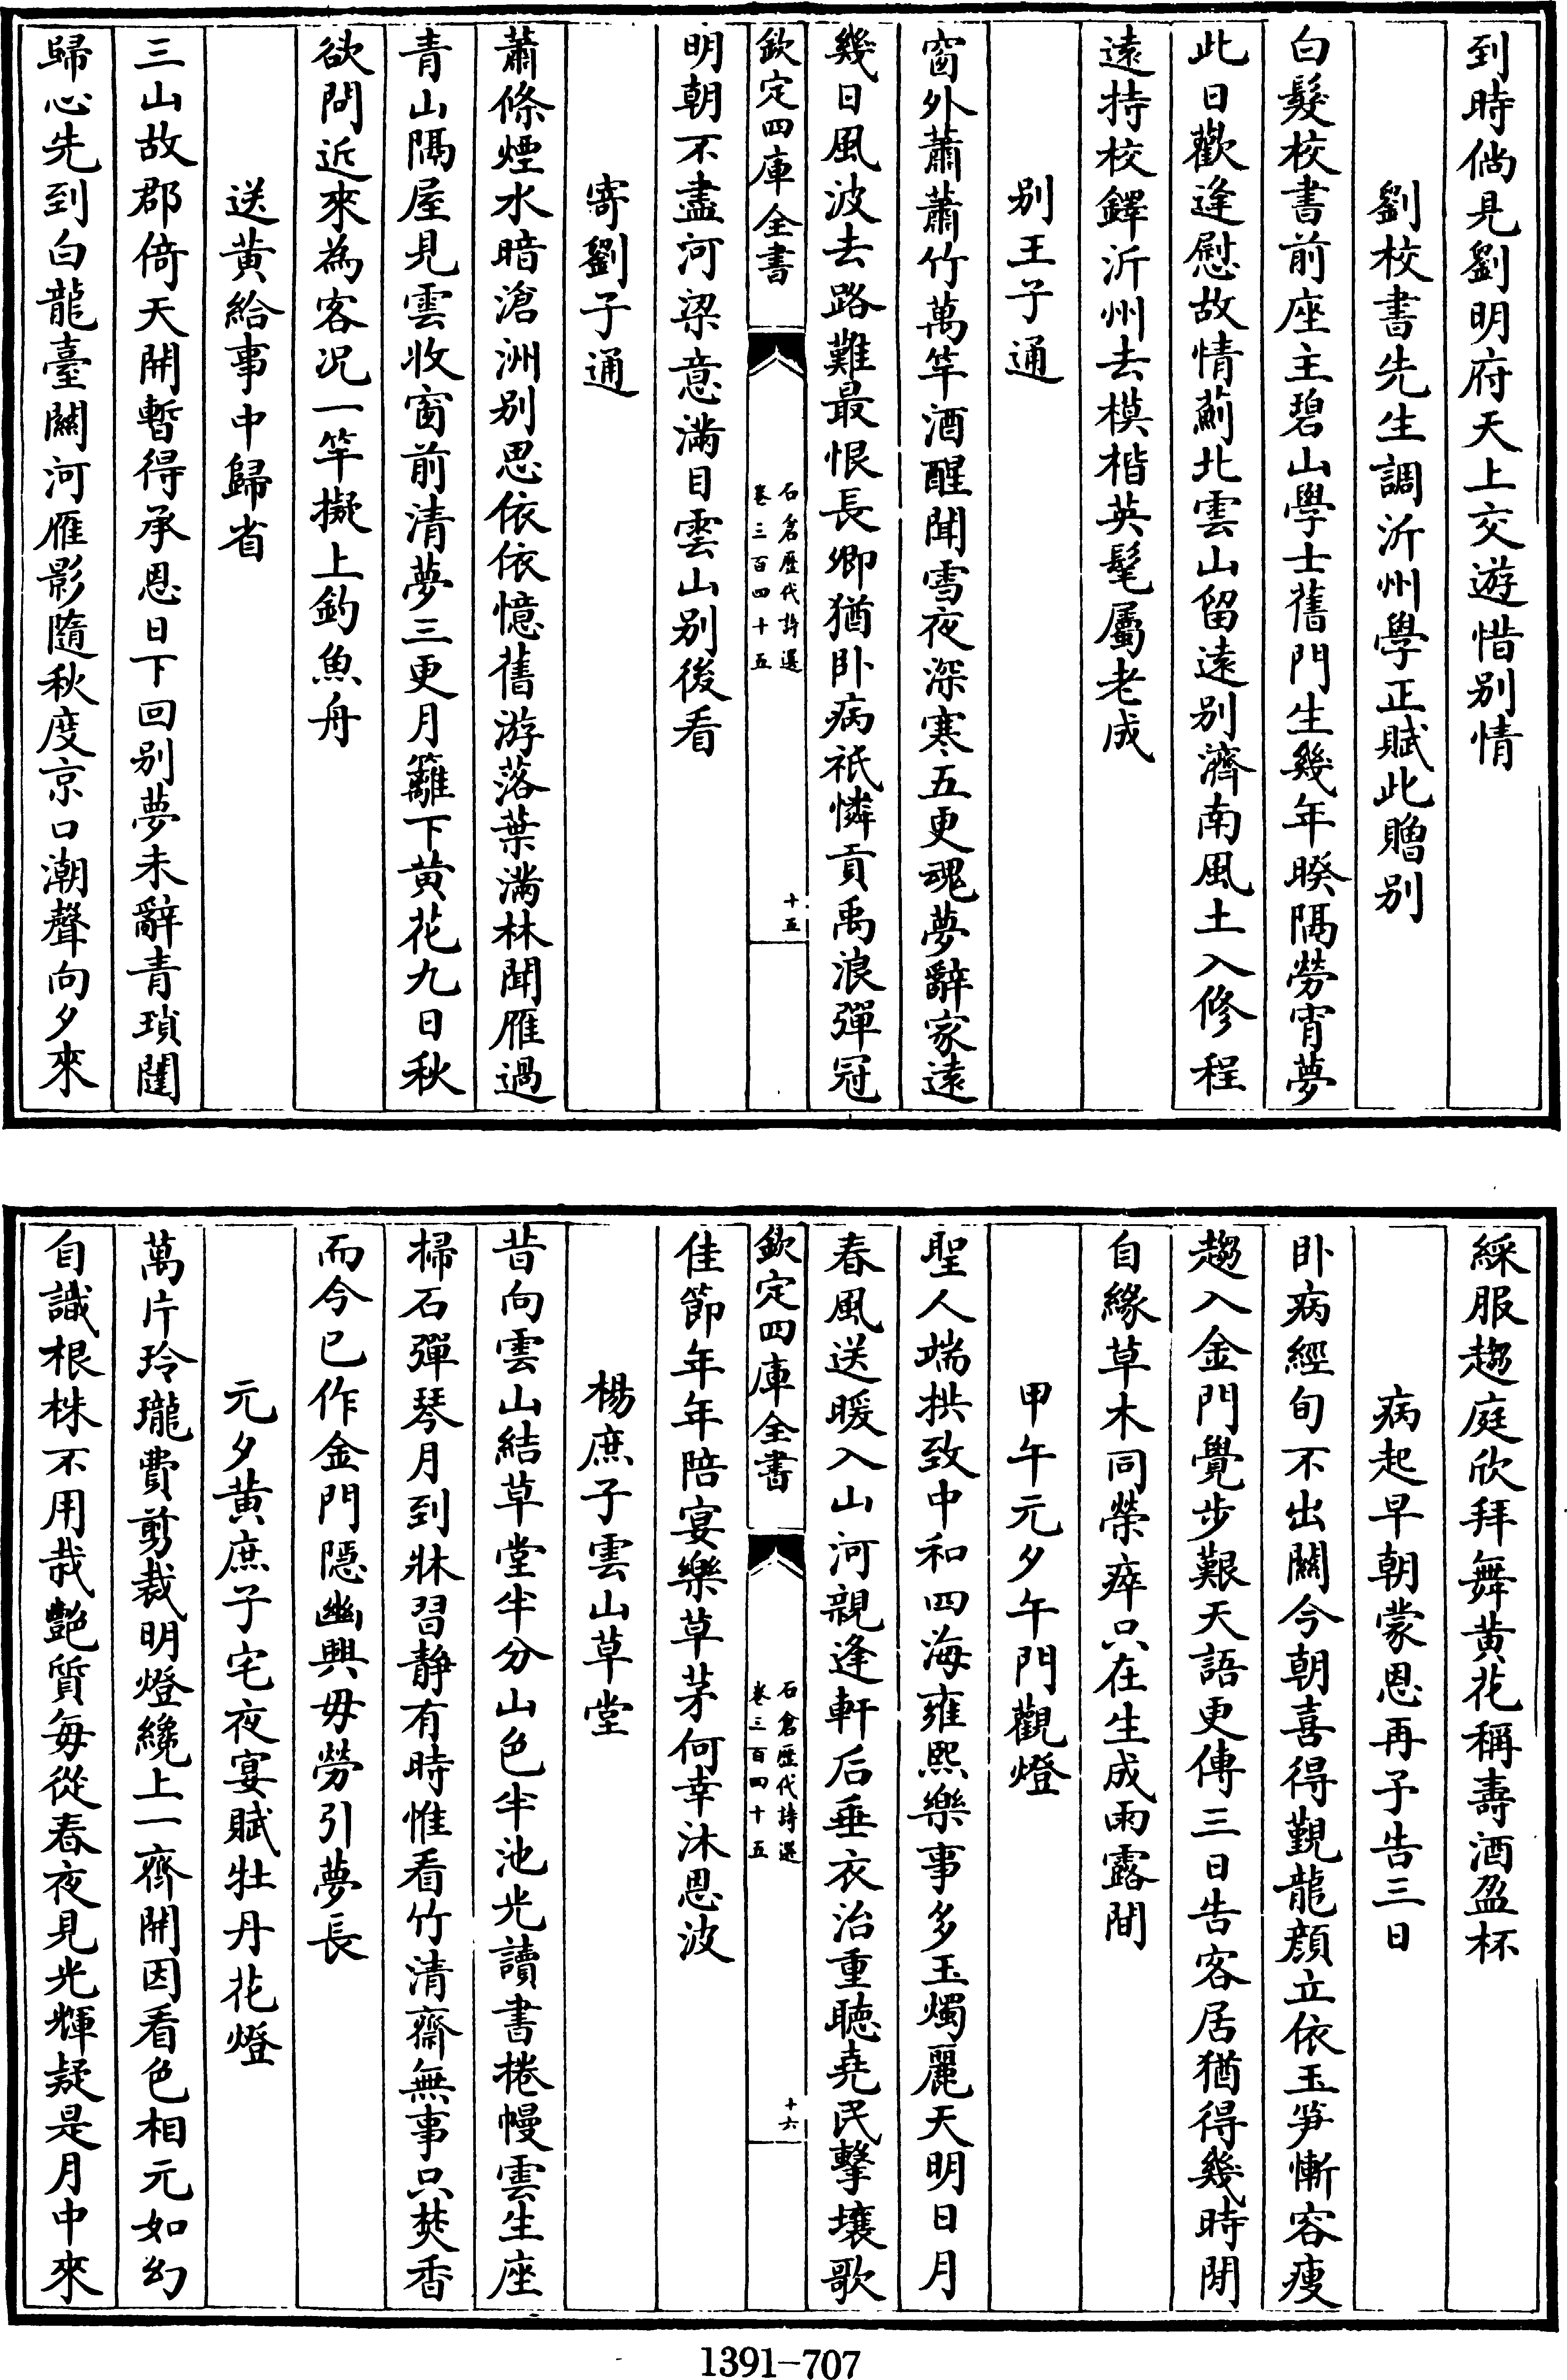 到時倘見劉明府天上交遊惜别情
劉校書先生調沂州學正賦此贈别
白髮校書前座主碧山學士舊門生幾年暌隔勞宵夢
此日歡逢慰故情薊北雲山留遠别濟南風土入修程
遠持校鐸沂州去模楷英髦屬老成
别王子通
窗外蕭蕭竹萬竿酒醒聞雪夜深寒五更魂夢辭家遠
幾日風波去路難最恨長卿猶卧病祇憐貢禹浪彈冠
欽定四庫全書
石倉歷代詩選
卷三百四十五
十五
明朝不盡河梁意滿目雲山别後看
寄劉子通
蕭條煙水暗滄洲别思依依憶舊游落葉滿林聞雁過
青山隔屋見雲收窗前清夢三更月籬下黄花九日秋
欲問近來為客况一竿擬上釣魚舟
送黄給事中歸省
三山故郡倚天開暫得承恩日下回别夢未辭青瑣闥
歸心先到白龍臺關河雁影隨秋度京口潮聲向夕來
綵服趨庭欣拜舞黄花稱壽酒盈杯
病起早朝蒙恩再予告三日
卧病經旬不出關今朝喜得覲龍顔立依玉笋慚容瘦
趨入金門覺步艱天語更傳三日告客居猶得幾時閒
自緣草木同榮瘁只在生成雨露間
甲午元夕午門觀燈
聖人端拱致中和四海雍熙樂事多玉燭麗天明日月
春風送暖入山河親逢軒后垂衣治重聽堯民擊壤歌
欽定四庫全書
石倉歷代詩選
卷三百四十五
十六
佳節年年陪宴樂草茅何幸沐恩波
楊庶子雲山草堂
昔向雲山結草堂半分山色半池光讀書捲幔雲生座
掃石彈琴月到牀習静有時惟看竹清齋無事只焚香
而今已作金門隱幽興毋勞引夢長
元夕黄庶子宅夜宴賦牡丹花燈
萬片玲瓏費剪裁明燈纔上一齊開因看色相元如幻
自識根株不用栽艶質每從春夜見光輝疑是月中來
1391-707